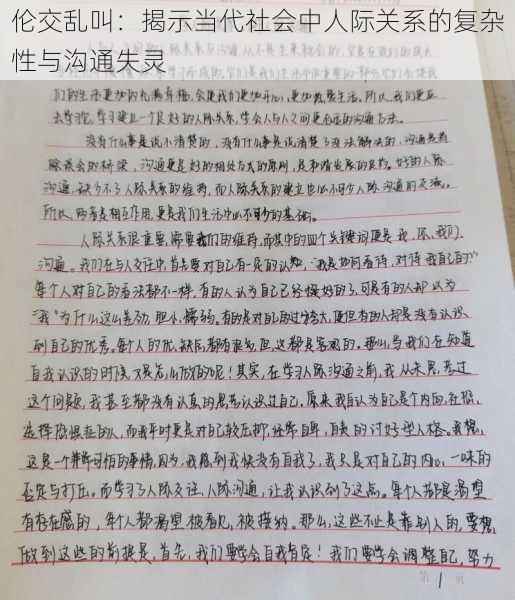 伦交乱叫：揭示当代社会中人际关系的复杂
性与沟通失灵
们的生活更加的充满幸福，会使我们更加开心，更加热爱生活。所以，我们更应
去学习，学习建立一个良好的人际关系，学会人与人之间更
没有什么事是说不清楚的，没有什么事是说清楚了没法解决的，沟通是消
除误会的桥梁，沟通更是好的相处方式的原则，是和谐发展的良药。好的人际
沟通，缺少不了人际关系的维持，而人际关系的建立也必不可少人际沟通的交流。
所以，两者是相互作用，更是我们生活中必不可少的基础。
人际关系很重要，需要我们的维持，而其中的四个关键词便是我、你、我们、
沟通。我们在与人交往中，首先要对自己有一定的认知，“我是如何看待、对待我自己的”
每个人对自己的看法都不一样，有的人认为自己已经挺好的了，可是有的人却认为
“我”为什么这么差劲，胆小，懦弱。有的是对自己的过于夸大，便但有的人却是没有认识
到自己的优秀，每个人的优、缺点都有很多，但，这都是客观的。那么，当我们在知道
自我认识的时候，又是怎么做的呢！其实，在学习人际沟通之前，我从未思考过
这个问题，我甚至都没有认真的思考认识过自己。原来我自认为自己是个内向，在
选择恐惧症的人，而我平时更是对自己较压抑，经常自卑，自责的讨好型人格。我想，
这是一个非常可怕的事情，因为，我感到我快没有自我了，我只是对自己的内心，一味的
否定与打压。而学习了人际交往，人际沟通，让我认识到了这点。每个人都是渴望
有存在感的，每个人都渴望被看见，被接纳。那么，这些不止是靠别人的，要想
做到这些的前提是，首先，我们要学会自我肯定！我们要学会调整自己，努力
第 1 页